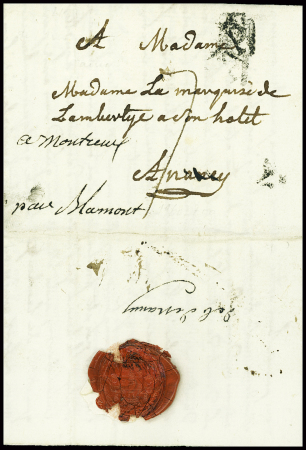 A Madame
Madame La marquise de
Lambertye a Son hotel
a Montreux
A nancy
par Blamont